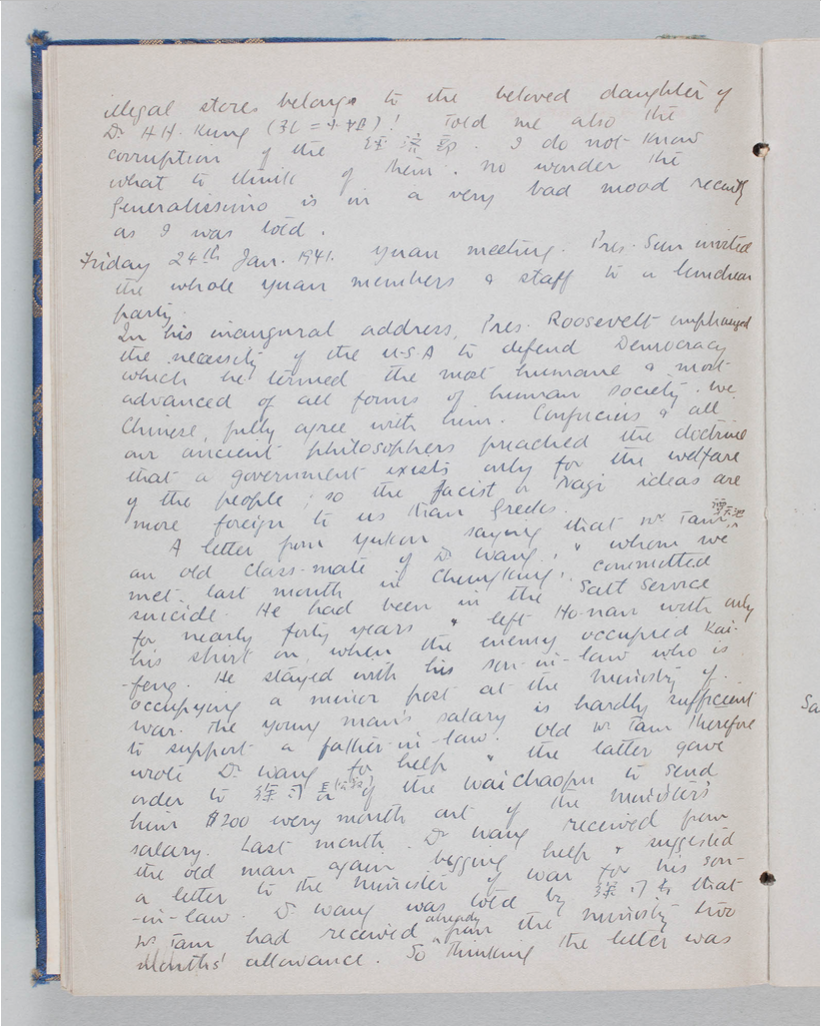 illegal stores belongs to the beloved daughter of
Dr. H.H. Kung (孔二小姐)! Told me also the
corruption of the 经济部. I do not know
what to think of them. no wonder the
Generalissimo is in a very bad mood recently
as I was told.
Friday 24th Jan. 1941. yuan meeting. Pres. Sun invited
the whole yuan members & staff to a luncheon
party.
In his inaugural address, Pres. Roosevelt emphasized
the necessity of the U.S.A to defend Democracy
which he termed the most humane & most
advanced of all forms of human society. we
Chinese, fully agree with him. Confucius & all
our ancient philosophers preached the doctrine
that a government exists only for the welfare
of the people; so the facist or Nazi ideas are
more foreign to us than Greeks.
A letter from Yukon saying that Mr Tam
an old class-mate of Dr Wang, whom we
met last month in Chungking, committed
suicide. He had been in the Salt Service
for nearly forty years & left Honan with only
his shirt on, when the enemy occupied Kai-
-feng. He stayed with his son-in-law who is
occupying a minor post at the ministry of
war. The young man's salary is hardly sufficient
to support a father-in-law. Old Mr Tam therefore
wrote Dr Wang for help & the latter gave
order to 司長 of the Waichaopu to send
him $200 every month out of the minister's
salary. Last month Dr Wang received from
the old man again begging help & suggested
a letter to the minister of war for his son-
-in-law. Dr Wang was told by 司長 that
Mr Tam had received already from the ministry two
months' allowance. So thinking the letter was
Sa